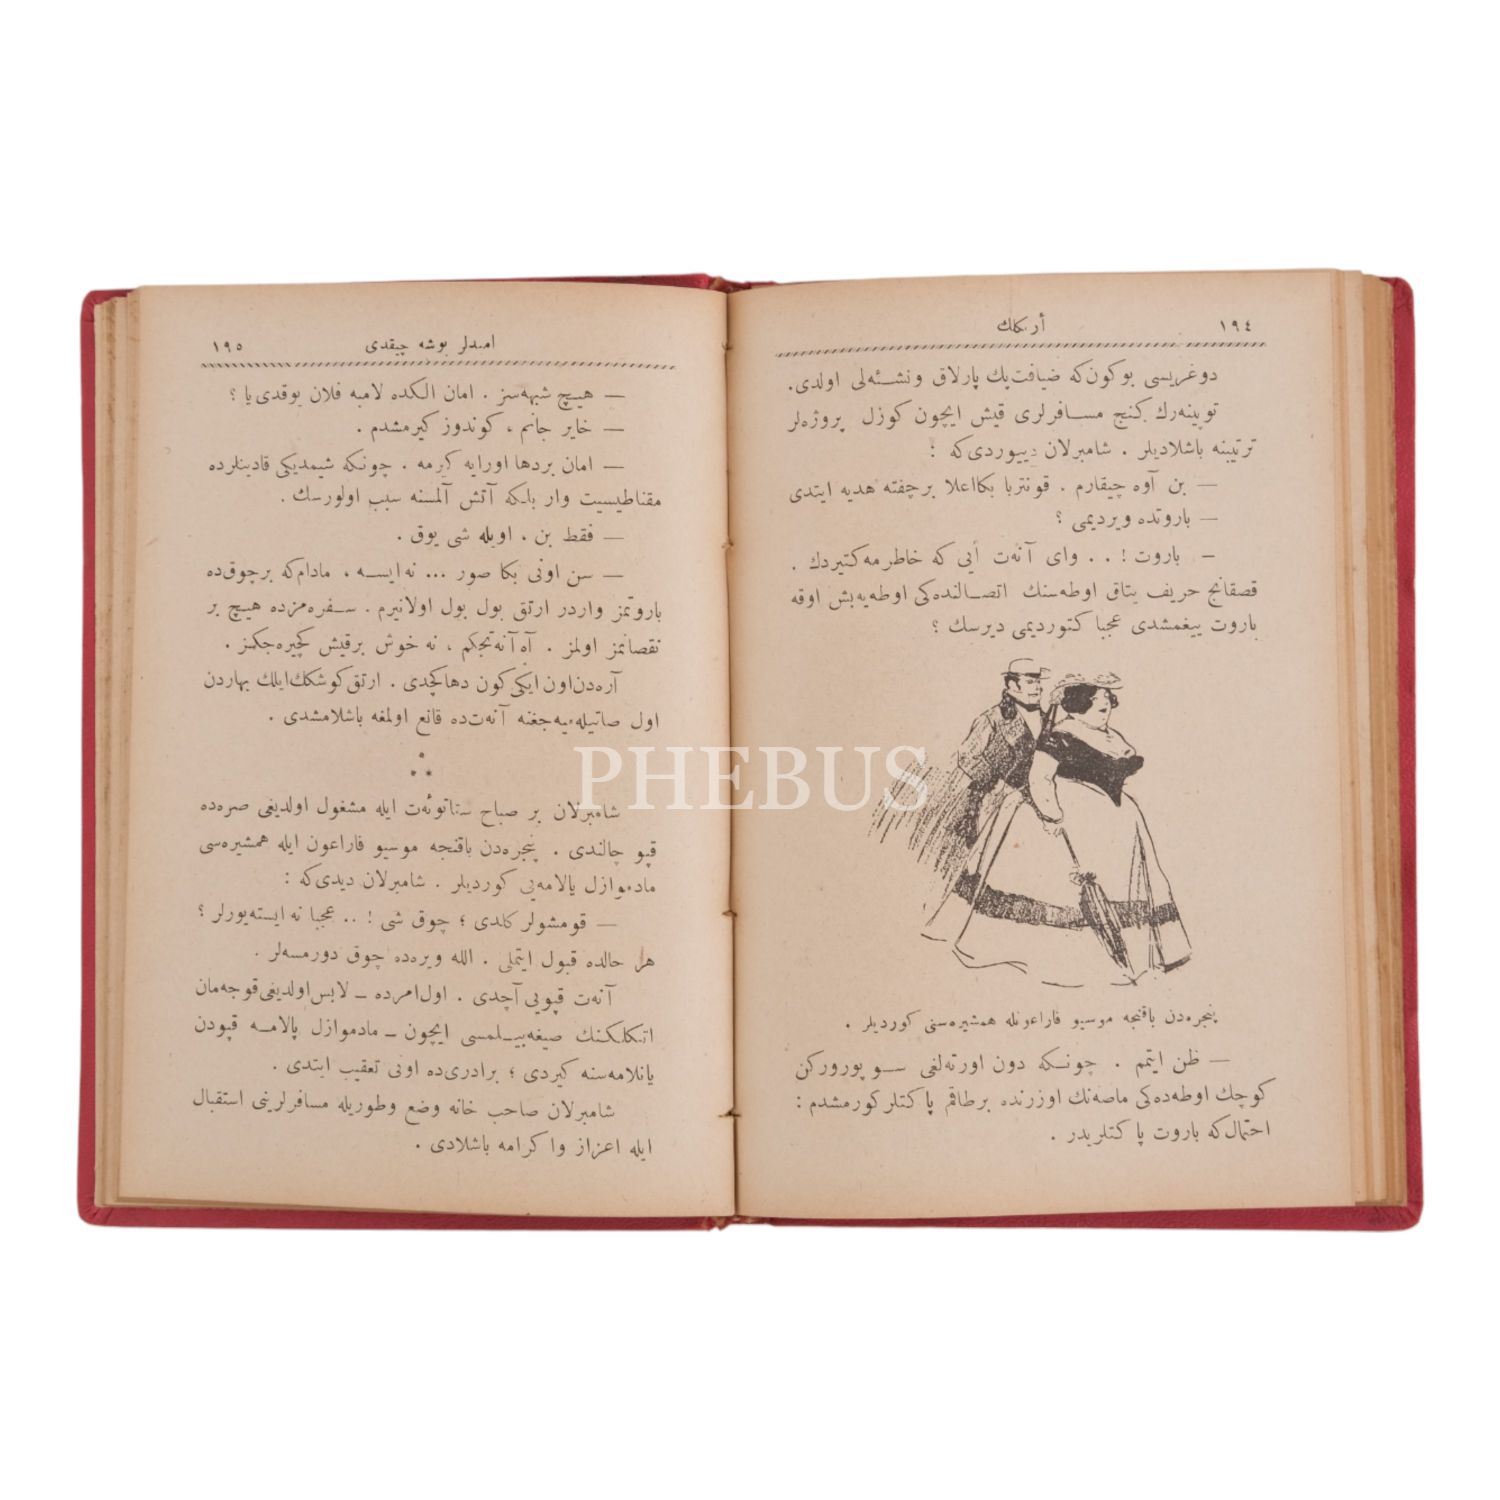 ١٩٤
أركلك
دوغريسى بوكون‌كه ضيافت‌پك پارلاق ونشئه‌لى اولدى.
توپينه‌رك كنج مسافرلرى قيش ايچون كوزل پروژه‌لر
ترتيبنه باشلاديلر . شامبرلان دييوردى‌كه :
— بن آوه چيقارم . قونتربا بكااعلا برچفته هديه ايتدى
— باروتده ويرديمى ؟
— باروت ! . . واى آنه‌ت أيى كه خاطرمه‌كتيردك .
قصقانج حريف يتاق اوطه‌سنك اتصالنده‌كى اوطه‌يه‌بش اوقه
باروت ييغمشدى عجبا كتورديمى ديرسك ؟
پنجره‌دن باقنجه موسيو فاراعونله همشيره‌سنى كورديلر .
— ظن ايتمم . چونكه دون اورته‌لغى سوپوروركن
كوچك اوطه‌ده‌كى ماصه‌نك اوزرنده برطاقم پاكتلركورمشدم :
احتمال‌كه باروت پاكتلريدر .
اميدلر بوشه چيقدى
١٩٥
— هيچ شبهه‌سز . امان الكده لامبه فلان يوقدى‌يا ؟
— خاير جانم ، كوندوز كيرمشدم .
— امان بردها اورايه كيرمه . چونكه شيمديكى قادينلرده
مقناطيسيت وار بلكه آتش آلمسنه سبب اولورسك .
— فقط بن ، اويله شى يوق .
— سن اونى بكا صور ... نه‌ايسه ، مادام‌كه برچوق‌ده
باروتمز واردر ارتق بول بول اولانيرم . سفره‌مزده هيچ بر
نقصانمز اولمز . آه‌آنه‌تجكم ، نه خوش برقيش كچيره‌جكمز .
آره‌دن‌اون ايكى‌كون دهاكچدى . ارتق‌كوشكك‌ايلك بهاردن
اول صاتيله‌ميه‌جغنه آنه‌ت‌ده قانع اولمغه باشلامشدى .
* * *
شامبرلان بر صباح ستاتوئه‌ت ايله مشغول اولديغى صره‌ده
قپو چالندى . پنجره‌دن باقنجه موسيو فاراعون ايله همشيره‌سى
مادموازل پالامه‌يى كورديلر . شامبرلان ديدى‌كه :
— قومشولر كلدى ؛ چوق شى ! .. عجبا نه ايسته‌يورلر ؟
هر حالده قبول ايتملى . الله ويره‌ده چوق دورمسه‌لر .
آنه‌ت قپويى آچدى . اول‌امرده — لابس‌اولديغى‌قوجه‌مان
اتكلكنك صيغه‌بيلمسى ايچون — مادموازل پالامه قپودن
يانلامه‌سنه كيردى ؛ برادرى‌ده اونى تعقيب ايتدى .
شامبرلان صاحب خانه وضع وطوريله مسافرلرينى استقبال
ايله اعزاز واكرامه باشلادى .
PHEBUS